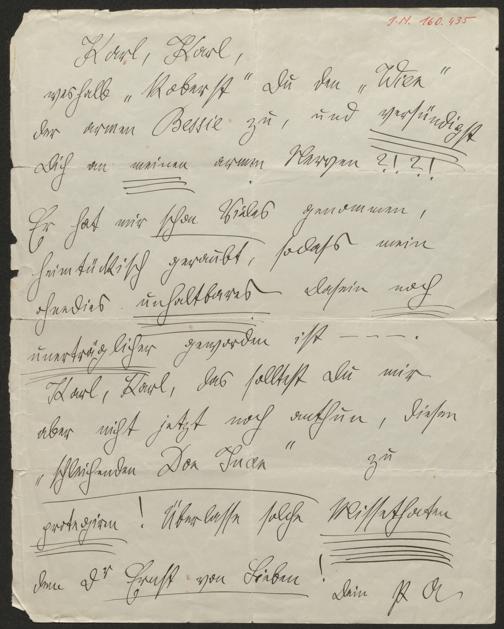 I.N. 160.435
Karl, Karl,
weshalb „Koberst" Du den „Wien"
der armen Bessie zu, und versündigst
Dich an meinen armen Nerven ?!?!
Er hat mir schon Vieles genommen,
heimtückisch geraubt, sodass mein
ohnedies unhaltbares Dasein noch
unerträglicher geworden ist — — — .
Karl, Karl, das solltest Du mir
aber nicht jetzt noch anthun, diesen
„schleichenden Don Juan" zu
protegiren! Überlasse solche Missethaten
dem Dr Ernst von Lieben!
Dein P A